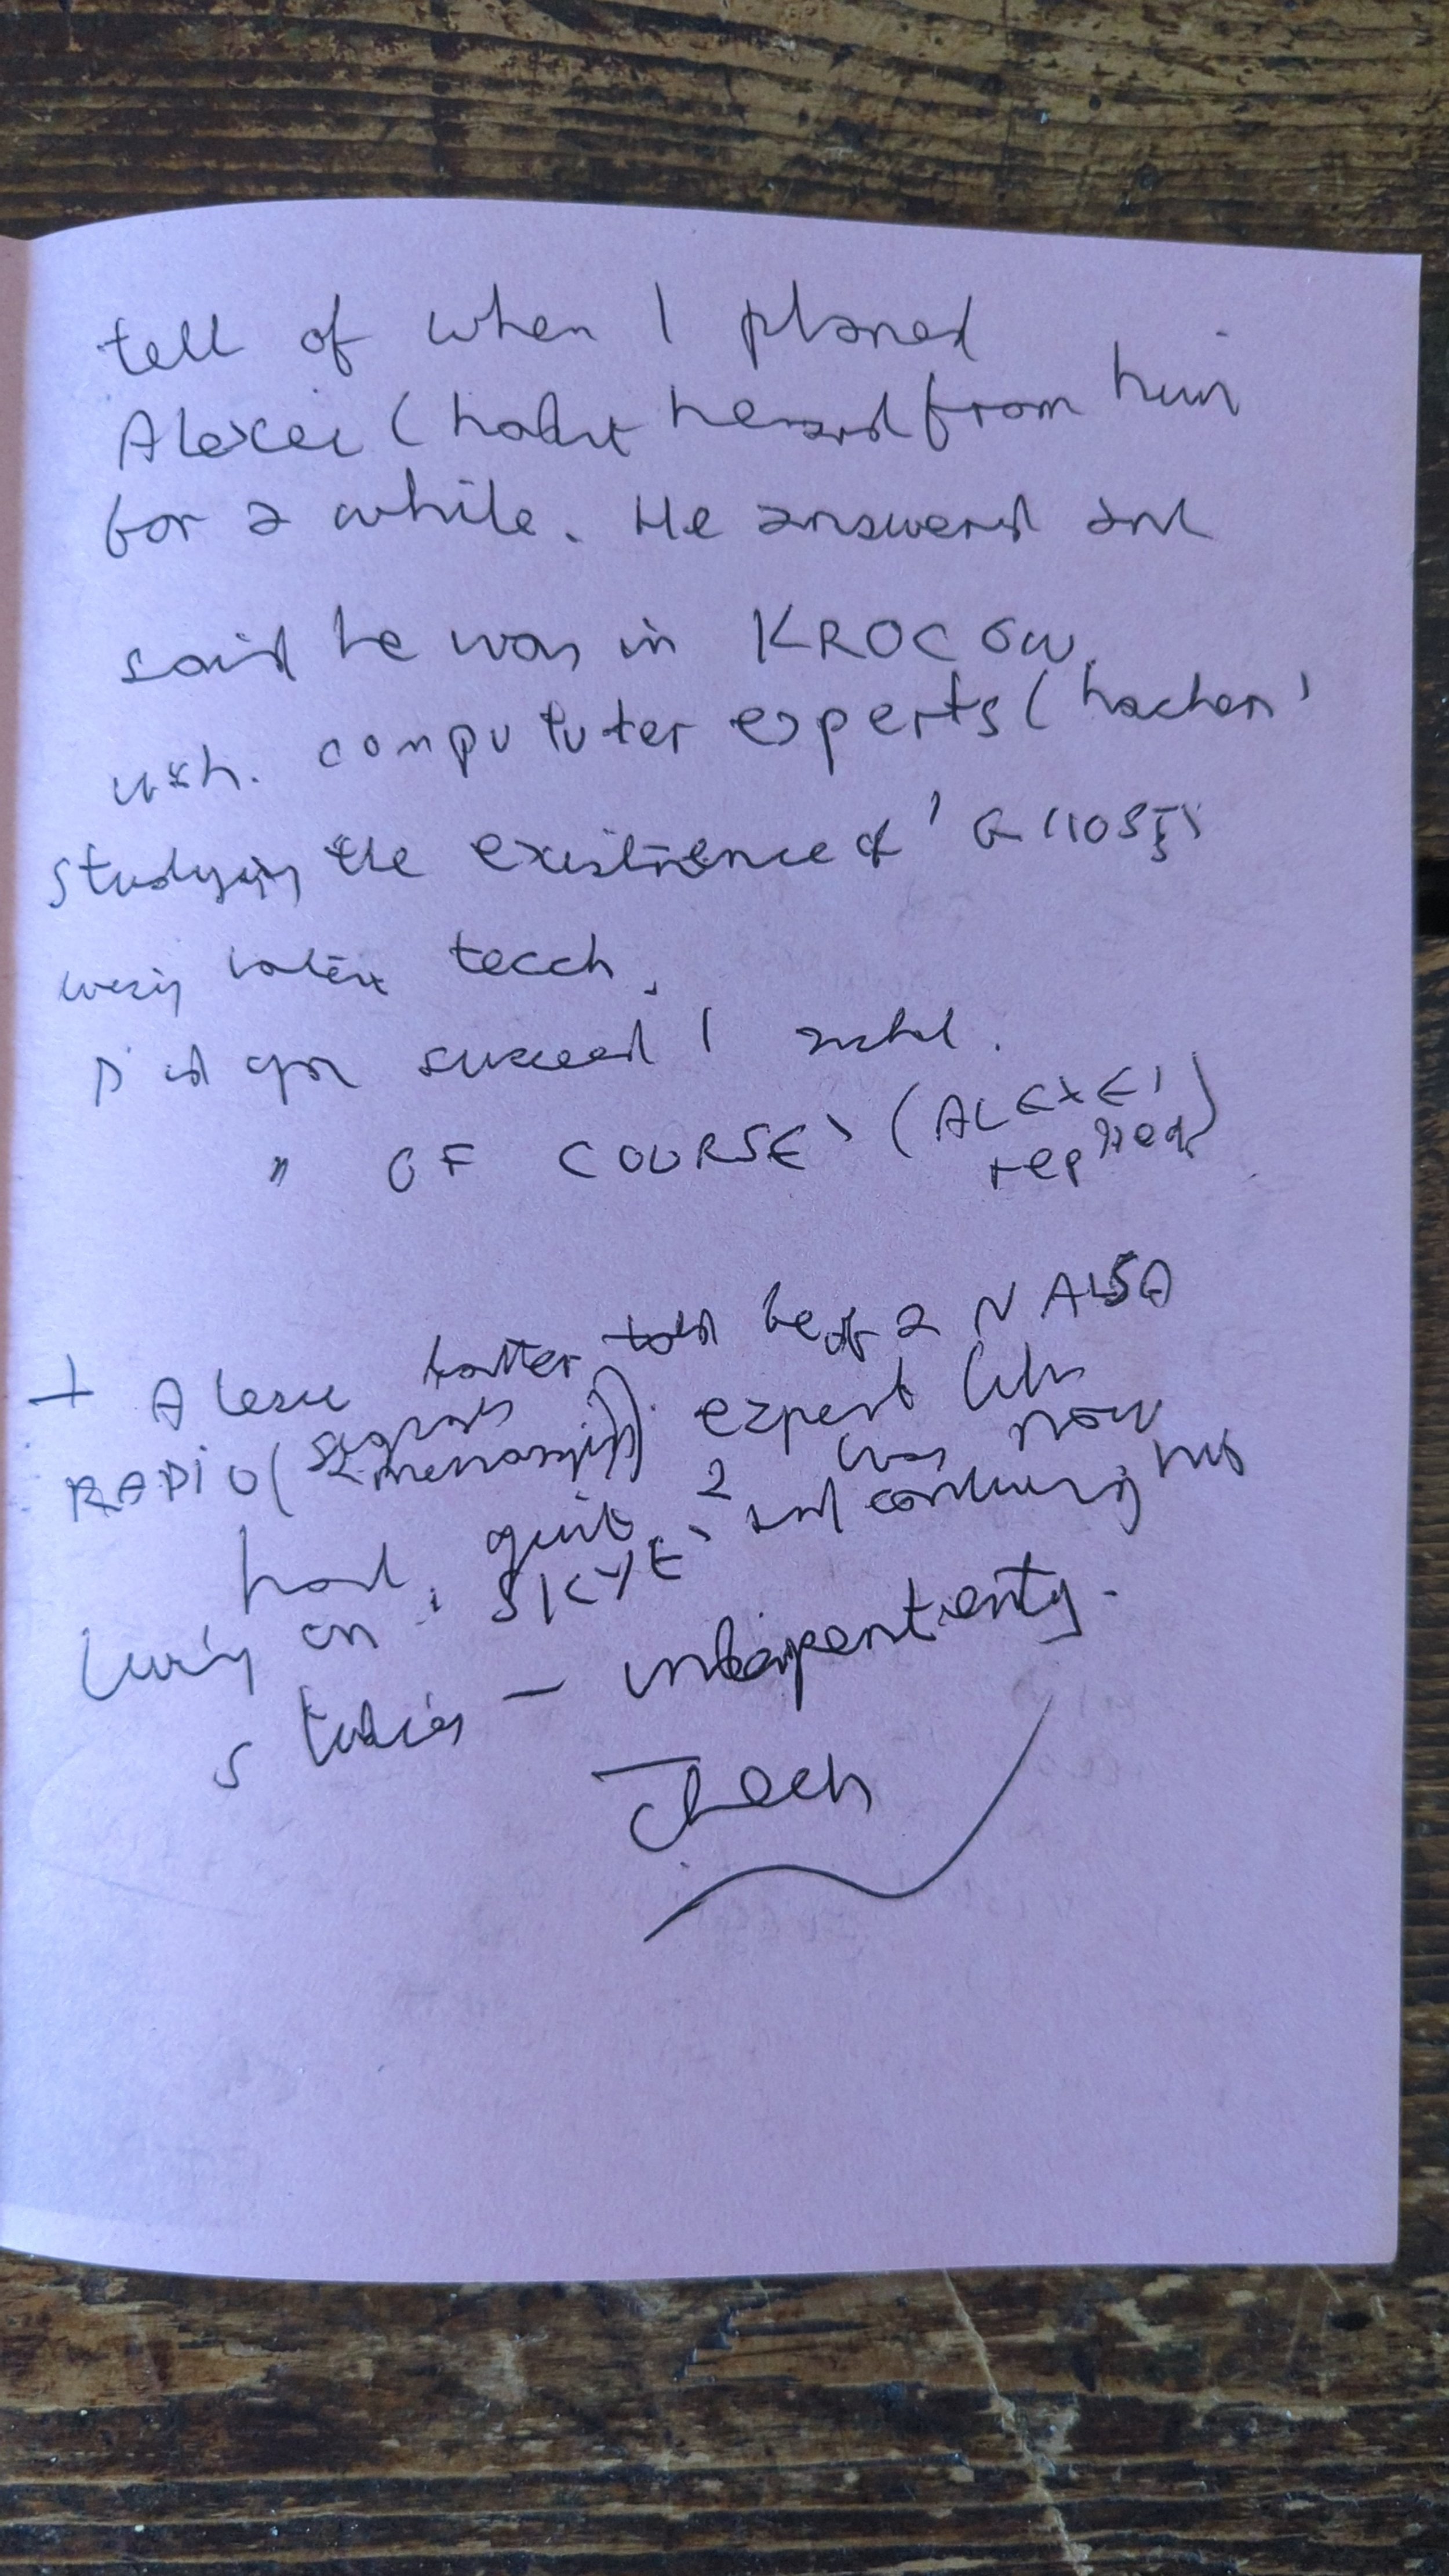 tell of when I phoned
Alexei (hadnt heard from him
for a while. He answered and
said he was in KROCOW,
with. compututer experts (hackers'
studying the existence of 'GHOSTS
using latest tecch.
Did you succeed I asked.
" OF COURSE' (ALEXEI
replied)
+ Alexei latter told be of a NASA
RADIO (signals & messages) expert who
had, quit, & was now
living on 'SKYE' and continuing his
studies — independently.
Check